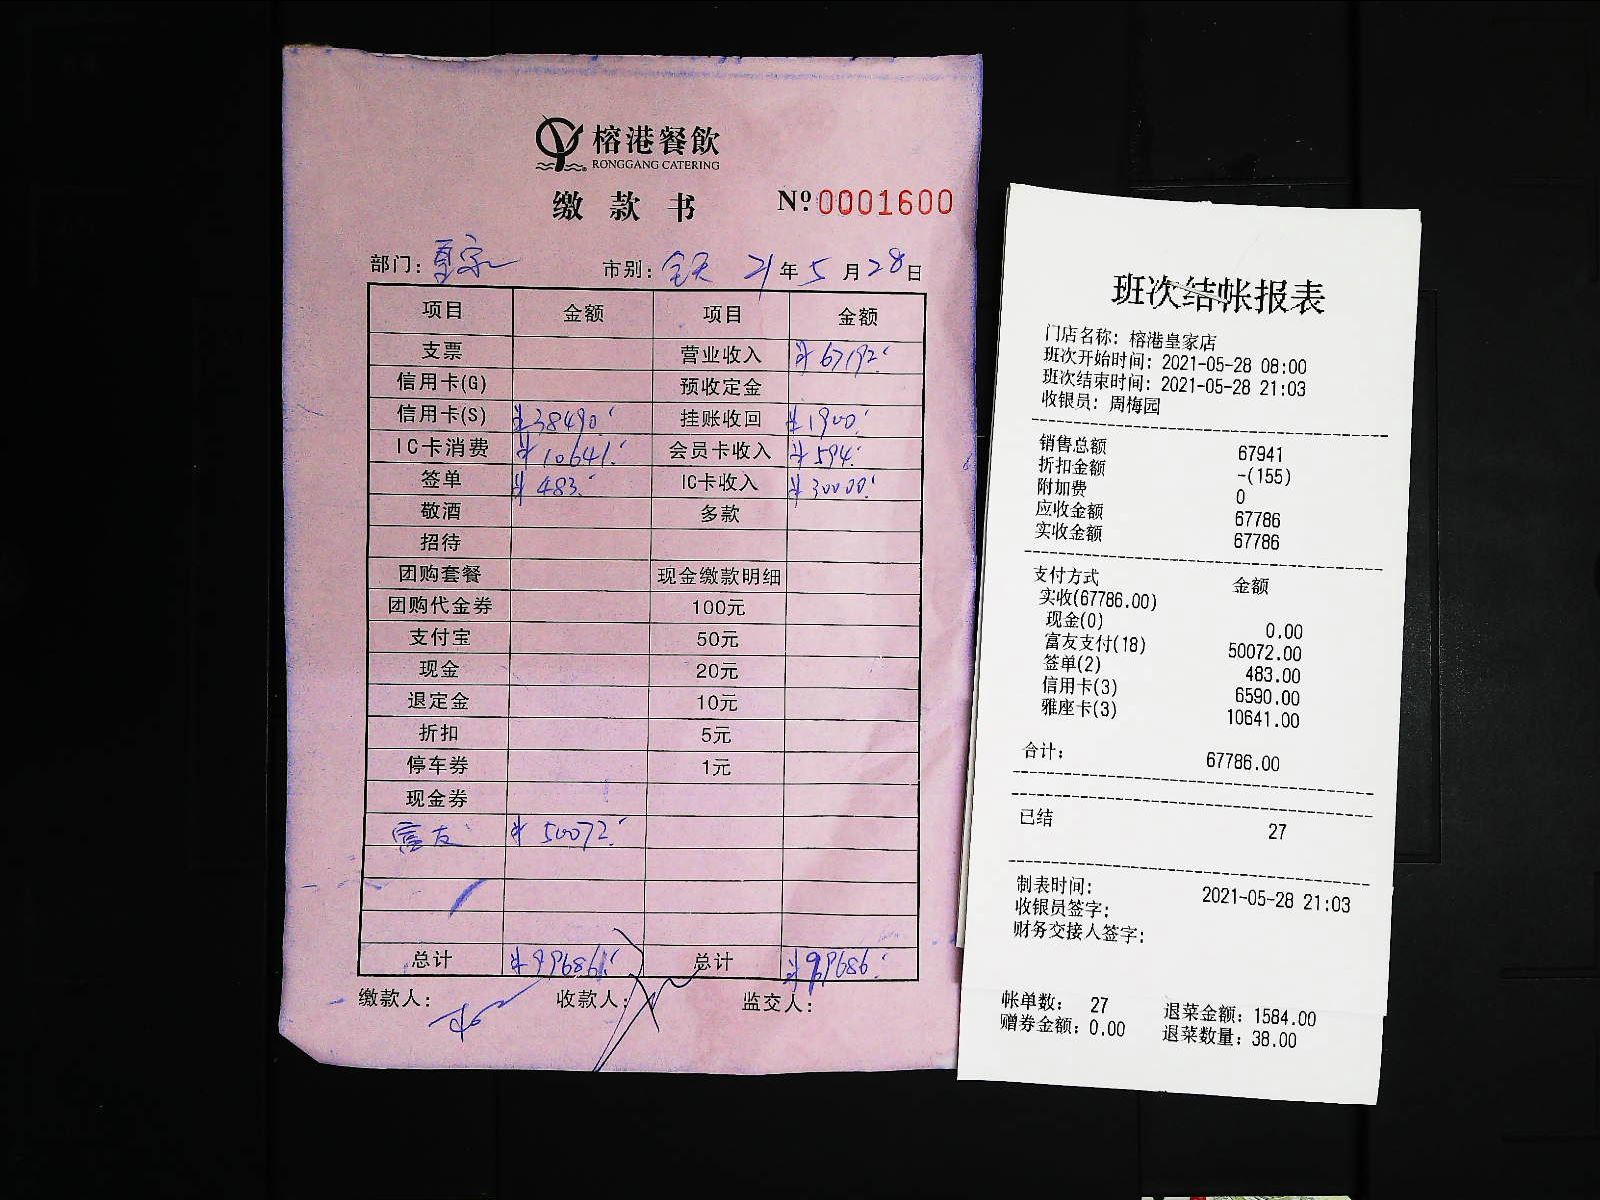 榕港餐飲
RONGGANG CATERING
缴款书 № 0001600
部门： 市别：全天 21年5月28日
项目 金额 项目 金额
支票 营业收入 ¥67192.
信用卡(G) 预收定金
信用卡(S) ¥38490. 挂账收回 ¥1900.
IC卡消费 ¥10641. 会员卡收入 ¥594.
签单 ¥483. IC卡收入 ¥30000.
敬酒 多款
招待
团购套餐 现金缴款明细
团购代金券 100元
支付宝 50元
现金 20元
退定金 10元
折扣 5元
停车券 1元
现金券
富友 ¥50072.
总计 ¥99686. 总计 ¥99686.
缴款人： 收款人： 监交人：
班次结帐报表
门店名称：榕港皇家店
班次开始时间：2021-05-28 08:00
班次结束时间：2021-05-28 21:03
收银员：周梅园
销售总额 67941
折扣金额 -(155)
附加费 0
应收金额 67786
实收金额 67786
支付方式 金额
实收(67786.00)
现金(0) 0.00
富友支付(18) 50072.00
签单(2) 483.00
信用卡(3) 6590.00
雅座卡(3) 10641.00
合计： 67786.00
已结 27
制表时间： 2021-05-28 21:03
收银员签字：
财务交接人签字：
帐单数： 27 退菜金额：1584.00
赠券金额：0.00 退菜数量：38.00